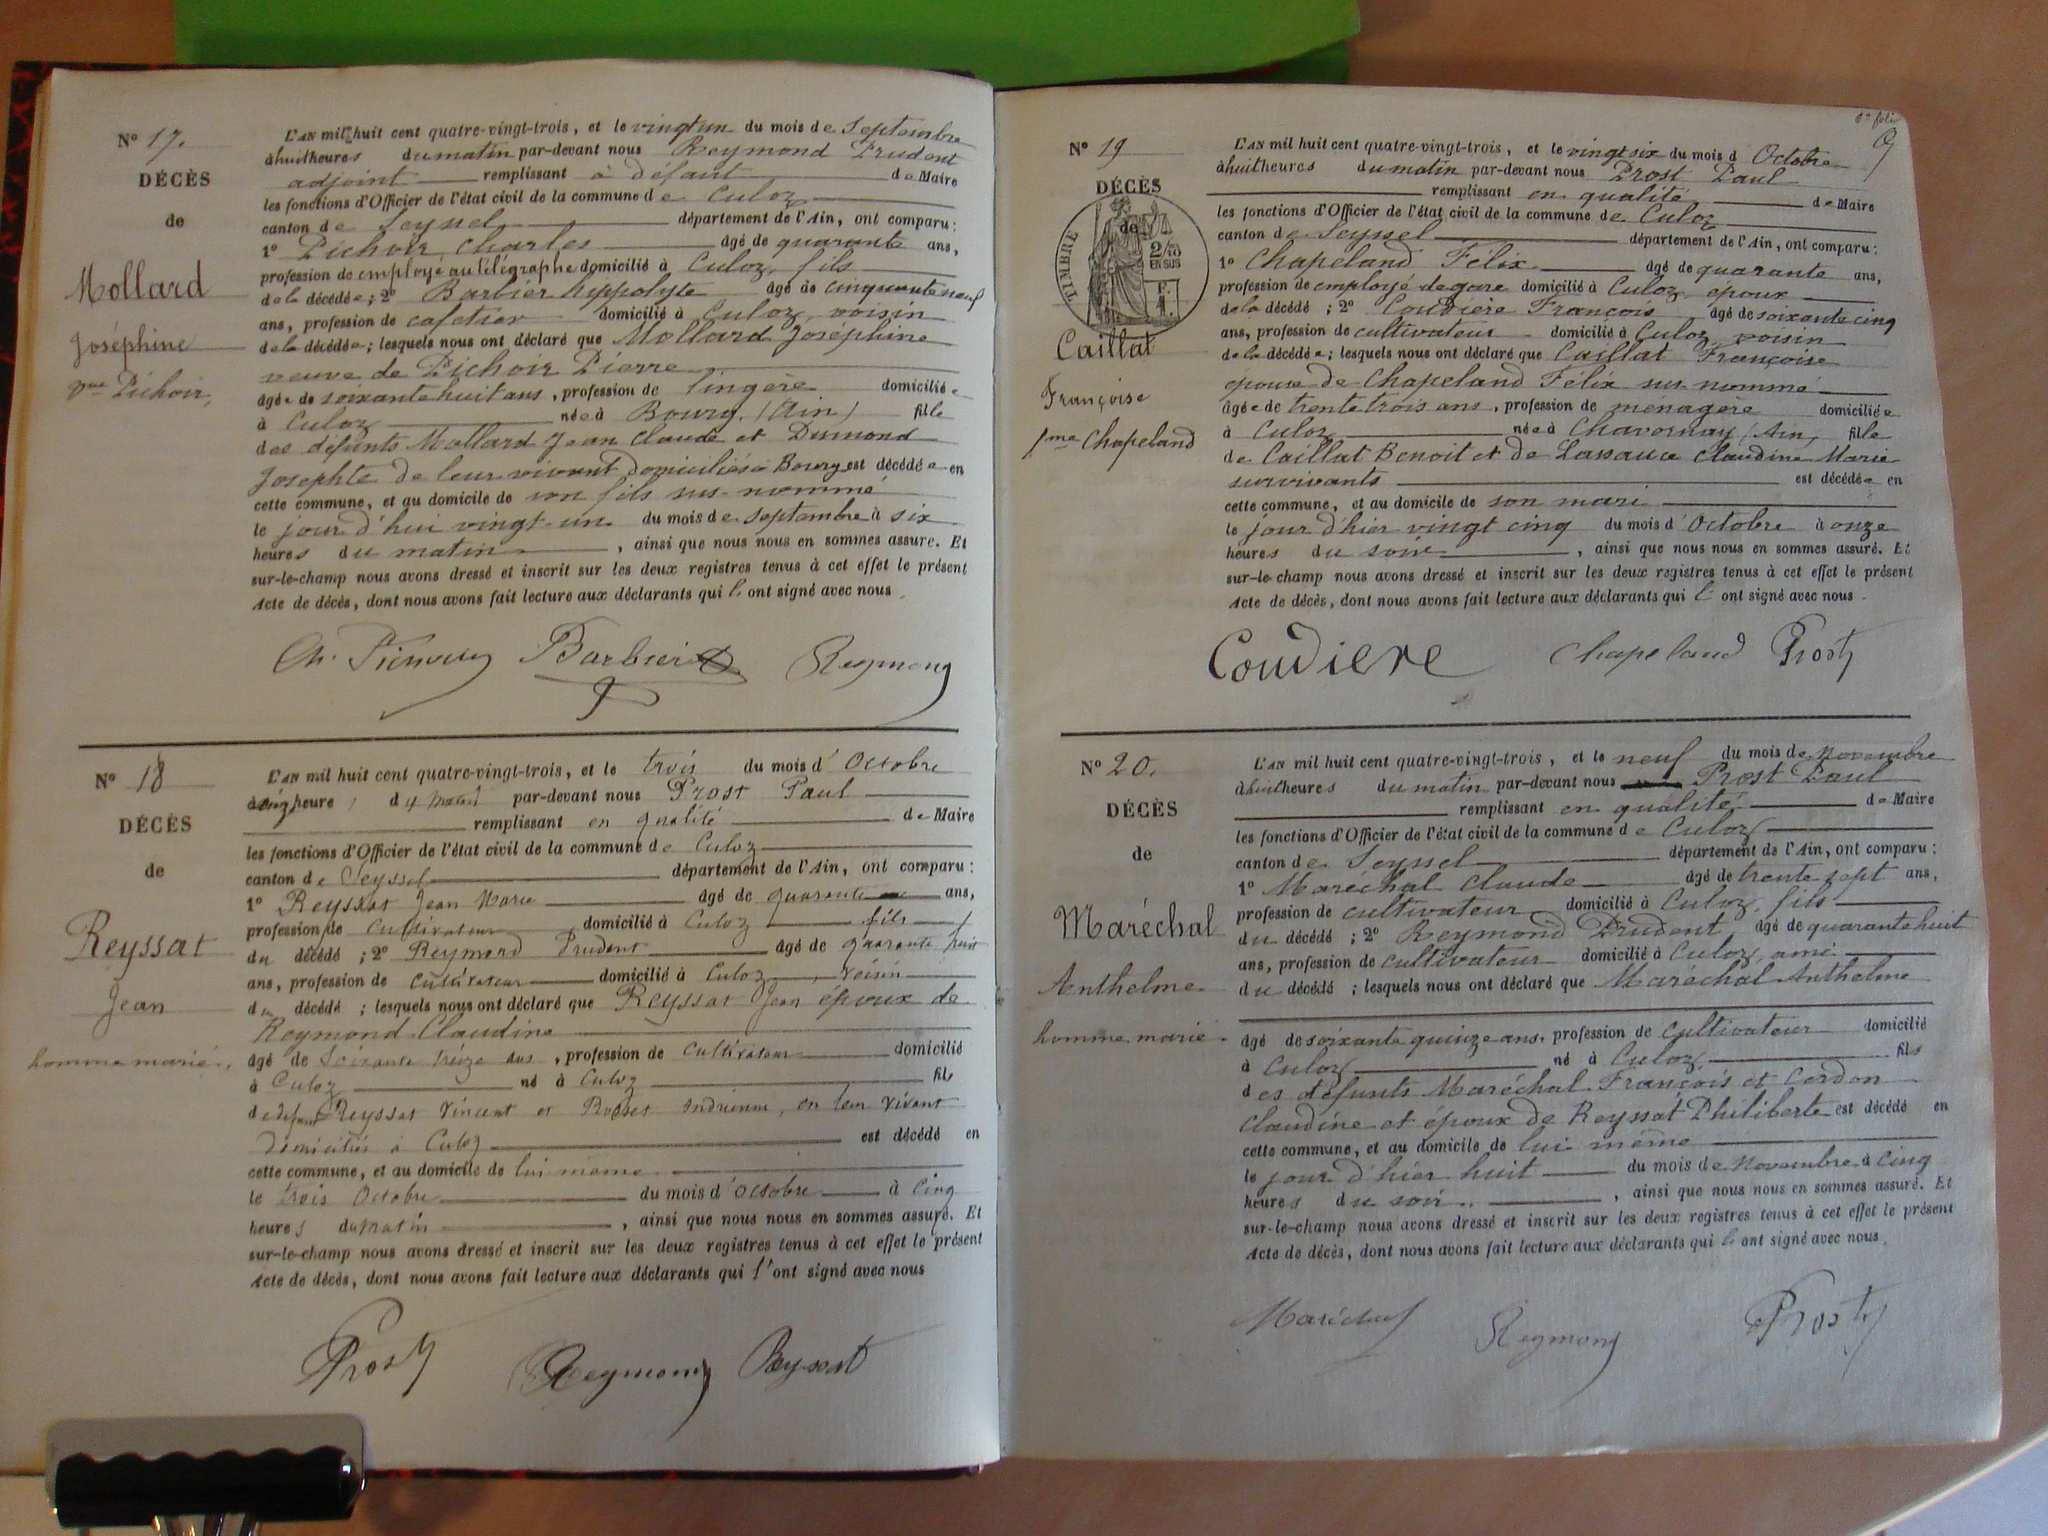 N° 17.
DÉCÈS
de
Mollard
Joséphine
Vve Pichoir,
L'AN mil huit cent quatre-vingt-trois, et le vingt un du mois de Septembre
à huit heures du matin par-devant nous Reymond Prudent
adjoint remplissant à défaut de Maire
les fonctions d'Officier de l'état civil de la commune de Culoz
canton de Seyssel département de l'Ain, ont comparu:
1° Pichoir, Charles âgé de quarante ans,
profession de employé au télégraphe domicilié à Culoz, fils
de la décédée; 2° Barbier hippolyte âgé de cinquante neuf
ans, profession de cafetier domicilié à Culoz, voisin
de la décédée; lesquels nous ont déclaré que Mollard Joséphine
veuve de Pichoir Pierre
âgée de soixante huit ans, profession de lingère domiciliée
à Culoz née à Bourg, (Ain) fille
des défunts Mollard Jean Claude et Dumond
Josephte de leur vivant domiciliés à Bourg est décédée en
cette commune, et au domicile de son fils sus-nommé
le jour d'hui vingt-un du mois de septembre à six
heures du matin, ainsi que nous nous en sommes assuré. Et
sur-le-champ nous avons dressé et inscrit sur les deux registres tenus à cet effet le présent
Acte de décès, dont nous avons fait lecture aux déclarants qui l'ont signé avec nous.
Barbier Reymond
N° 18
DÉCÈS
de
Reyssat
Jean
homme marié,
L'AN mil huit cent quatre-vingt-trois, et le trois du mois d'Octobre
heure du matin par-devant nous Prost Paul
remplissant en qualité de Maire
les fonctions d'Officier de l'état civil de la commune de Culoz
canton de Seyssel département de l'Ain, ont comparu:
1° Reyssat Jean Marie âgé de quarante ans,
profession de cultivateur domicilié à Culoz fils
du décédé; 2° Reymond Prudent âgé de quarante huit
ans, profession de cultivateur domicilié à Culoz, voisin
du décédé; lesquels nous ont déclaré que Reyssat Jean époux de
Reymond Claudine
âgé de Soixante treize ans, profession de Cultivateur domicilié
à Culoz né à Culoz fils
de défunt Reyssat Vincent et Andrienne, en leur vivant
domiciliés à Culoz est décédé en
cette commune, et au domicile de lui même
le trois Octobre du mois d'Octobre à Cinq
heures du matin, ainsi que nous nous en sommes assuré. Et
sur-le-champ nous avons dressé et inscrit sur les deux registres tenus à cet effet le présent
Acte de décès, dont nous avons fait lecture aux déclarants qui l'ont signé avec nous
Prost Reymond Reyssat
6e folio
9
N° 19
DÉCÈS
de
TIMBRE
2/10
EN SUS
Caillat
Françoise
fme Chapeland
L'AN mil huit cent quatre-vingt-trois, et le vingt six du mois d Octobre
à huit heures du matin par-devant nous Prost Paul
remplissant en qualité de Maire
les fonctions d'Officier de l'état civil de la commune de Culoz
canton de Seyssel département de l'Ain, ont comparu:
1° Chapeland Félix âgé de quarante ans,
profession de employé de gare domicilié à Culoz, époux
de la décédé; 2° Coudière François âgé de soixante cinq
ans, profession de cultivateur domicilié à Culoz, voisin
de la décédée; lesquels nous ont déclaré que Caillat Françoise
épouse de Chapeland Félix sus-nommé
âgée de trente trois ans, profession de ménagère domiciliée
à Culoz née à Chavornay (Ain, fille
de Caillat Benoit et de Lassauce Claudine Marie
survivants est décédée en
cette commune, et au domicile de son mari
le jour d'hier vingt cinq du mois d'Octobre à onze
heures du soir, ainsi que nous nous en sommes assuré. Et
sur-le-champ nous avons dressé et inscrit sur les deux registres tenus à cet effet le présent
Acte de décès, dont nous avons fait lecture aux déclarants qui l'ont signé avec nous.
Coudiere Chapeland Prost
N° 20.
DÉCÈS
de
Maréchal
Anthelme
homme marié.
L'AN mil huit cent quatre-vingt-trois, et le neuf du mois de Novembre
à huit heures du matin par-devant nous Prost Paul
remplissant en qualité de Maire
les fonctions d'Officier de l'état civil de la commune de Culoz
canton de Seyssel département de l'Ain, ont comparu:
1° Maréchal Claude âgé de trente sept ans,
profession de cultivateur domicilié à Culoz, fils
du décédé; 2° Reymond Prudent, âgé de quarante huit
ans, profession de cultivateur domicilié à Culoz, ami
du décédé; lesquels nous ont déclaré que Maréchal Anthelme
âgé de soixante quinze ans, profession de cultivateur domicilié
à Culoz né à Culoz fils
des défunts Maréchal François et Cerdon
Claudine et époux de Reyssat Philiberte est décédé en
cette commune, et au domicile de lui même
le jour d'hier huit du mois de Novembre à cinq
heures du soir, ainsi que nous nous en sommes assuré. Et
sur-le-champ nous avons dressé et inscrit sur les deux registres tenus à cet effet le présent
Acte de décès, dont nous avons fait lecture aux déclarants qui l'ont signé avec nous.
Maréchal Reymond Prost